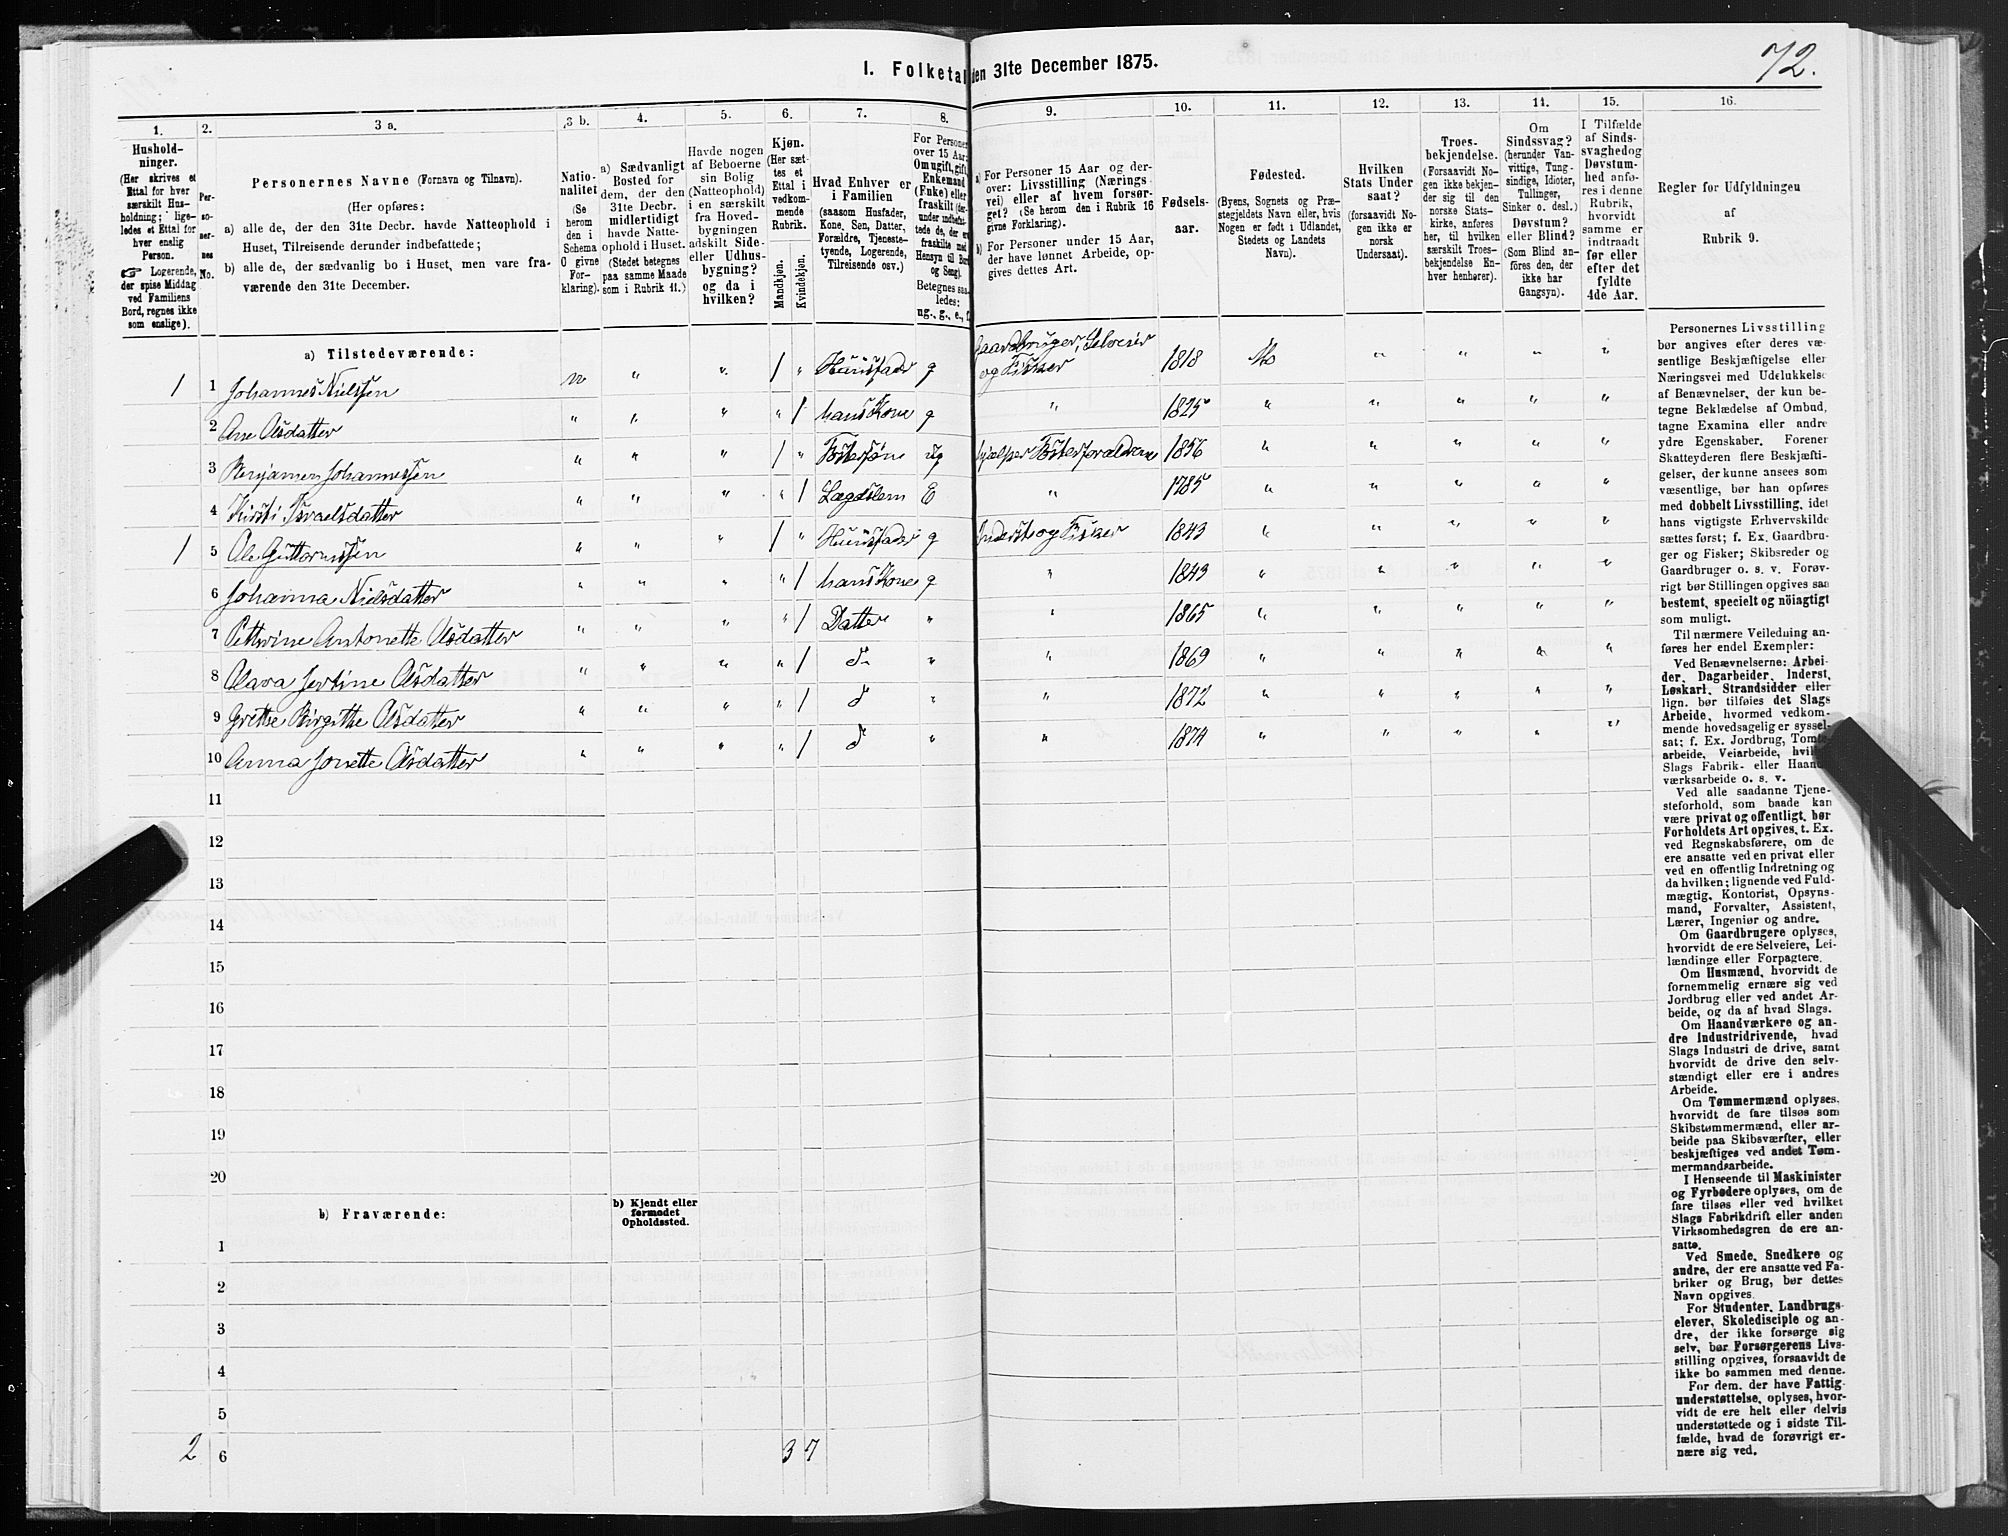 I. Folketal den 31te December 1875.
72.
1. 2. 3 a. 3 b. 4. 5. 6. 7. 8. 9. 10. 11. 12. 13. 14. 15. 16.
Hushold-
ninger.
(Her skrives et
Ettal for hver
særskilt Hus-
holdning; lige-
ledes et Ettal for
hver enslig
Person.
☞ Logerende,
der spise Middag
ved Familiens
Bord, regnes ikke
som enslige).
Per-
so-
ner-
nes
No.
Personernes Navne (Fornavn og Tilnavn).
(Her opføres:
a) alle de, der den 31te Decbr. havde Natteophold i
Huset, Tilreisende derunder indbefattede;
b) alle de, der sædvanlig bo i Huset, men vare fra-
værende den 31te December.
Natio-
nalitet
(Se
herom
den i
Schema
O givne
For-
klaring).
a) Sædvanligt
Bosted for
dem, der den
31te Decbr.
midlertidigt
havde Natte-
ophold i Huset.
(Stedet betegnes
paa samme Maade
som i Rubrik 11.)
Havde nogen
af Beboerne
sin Bolig
(Natteophold)
i en særskilt
fra Hoved-
bygningen
adskilt Side-
eller Udhus-
bygning?
og da i
hvilken?
Kjøn.
(Her sæt-
tes et
Ettal i
vedkom-
mende
Rubrik.
Mandkjøn.
Kvindekjøn.
Hvad Enhver er
i Familien
(saasom Husfader,
Kone, Søn, Datter,
Forældre, Tjeneste-
tyende, Logerende,
Tilreisende osv.)
For Personer
over 15 Aar:
Omugift, gift,
Enkemand
(Enke) eller
fraskilt
Betegnes saa-
ledes:
ug., g., e., f.
a) For Personer 15 Aar og der-
over: Livsstilling (Nærings-
vei) eller af hvem forsør-
get? (Se herom den i Rubrik 16
givne Forklaring).
b) For Personer under 15 Aar,
der have lønnet Arbeide, op-
gives dettes Art.
Fødsels-
aar.
Fødested.
(Byens, Sognets og Præ-
stegjeldets Navn eller, hvis
Nogen er født i Udlandet,
Stedets og Landets
Navn).
Hvilken
Stats Under-
saat?
(forsaavidt No-
gen ikke er
norsk
Undersaat).
Troes-
bekjendelse.
(Forsaavidt No-
gen ikke bekjen-
der sig til den
norske Stats-
kirke, anføres
her, til hvilken
særskilt Troes-
bekjendelse En-
hver henhører).
Om
Sindssvag?
(herunder Van-
vittige, Tung-
sindige, Idioter,
Tullinger,
Sinker o. desl.)
Døvstum?
eller Blind?
(Som Blind an-
føres den, der
ikke har
Gangsyn).
I Tilfælde
af Sinds-
svaghed og
Døvstum-
hed anfø-
res i denne
Rubrik,
hvorvidt
samme er
indtraadt
før eller
efter det
fyldte
4de Aar.
Regler for Udfyldningen
af
Rubrik 9.
a) Tilstedeværende:
1 1 Johannes Nielssen n " " 1 " Huusfader g Gaardbruger, Selveier og Fisker 1818 Mo " " " "
2 Ane Olsdatter " " " " 1 hans Kone g " 1825 " " " " "
3 Benjamin Johannessen " " " 1 " Fostersøn ug hjælper Fosterforældrene 1856 " " " " "
4 Kirsti Israelsdatter " " " " 1 Lægdslem E " 1785 " " " " "
1 5 Ole Guttormssen " " " 1 " Huusfader g Inderst og Fisker 1843 " " " " "
6 Johanna Nielsdatter " " " " 1 hans Kone g " 1843 " " " " "
7 Petterine Antonette Olsdatter " " " " 1 Datter " " 1865 " " " " "
8 Olava Jertine Olsdatter " " " " 1 d- " " 1869 " " " " "
9 Grethe Birgitte Olsdatter " " " " 1 d " " 1872 " " " " "
10 Anna Jonette Olsdatter " " " " 1 d " " 1874 " " " " "
11
12
13
14
15
16
17
18
19
20
b) Fraværende:
b) Kjendt eller
formodet
Opholdssted.
1
2
3
4
5
2 6 3 7
Personernes Livsstilling
bør angives efter deres væ-
sentlige Beskjæftigelse eller
Næringsvei med Udelukkelse
af Benævnelser, der kun be-
tegne Beklædelse af Ombud,
tagne Examina eller andre
ydre Egenskaber. Forener
Skatteyderen flere Beskjæfti-
gelser, der kunne ansees som
væsentlige, bør han opføres
med dobbelt Livsstilling, idet
hans vigtigste Erhvervskilde
sættes først; f. Ex. Gaardbru-
ger og Fisker; Skibsreder og
Gaardbruger o. s. v. Forøv-
rigt bør Stillingen opgives saa
bestemt, specielt og nöiagtigt
som muligt.
Til nærmere Veiledning an-
føres her endel Exempler:
Ved Benævnelserne: Arbei-
der, Dagarbeider, Inderst,
Løskarl, Strandsidder eller
lign. bør tilføies det Slags
Arbeide, hvormed vedkom-
mende hovedsagelig er syssel-
sat; f. Ex. Jordbrug, Tomte-
arbeide, Veiarbeide, hvilket
Slags Fabrik- eller Haand-
værksarbeide o. s. v.
Ved alle saadanne Tjene-
steforhold, som baade kan
være privat og offentligt, bør
Forholdets Art opgives, t. Ex.
ved Regnskabsførere, om de
ere ansatte ved en privat eller
ved en offentlig Indretning og
da hvilken; lignende ved Fuld-
mægtig, Kontorist, Opsyns-
mand, Forvalter, Assistent,
Lærer, Ingeniør og andre.
Om Gaardbrugere oplyses,
hvorvidt de ere Selveiere, Lei-
lændinge eller Forpagtere.
Om Husmænd, hvorvidt de
fornemmelig ernære sig ved
Jordbrug eller ved andet Ar-
beide, og da af hvad Slags.
Om Haandværkere og an-
dre Industridrivende, hvad
Slags Industri de drive, samt
hvorvidt de drive den selv-
stændigt eller ere i andres
Arbeide.
Om Tømmermænd oplyses,
hvorvidt de fare tilsøs som
Skibstømmermænd, eller ar-
beide paa Skibsværfter, eller
beskjæftiges ved andet Tøm-
mermandsarbeide.
I Henseende til Maskinister
og Fyrbødere oplyses, om de
fare tilsøs eller ved hvilket
Slags Fabrikdrift eller anden
Virksomhedsgren de ere an-
satte.
Ved Smede, Snedkere og
andre, der ere ansatte ved Fa-
briker og Brug, bør dettes
Navn opgives.
For Studenter, Landbrugs-
elever, Skoledisciple og an-
dre, der ikke forsørge sig
selv, bør Forsørgerens Livs-
stilling opgives, forsaavidt de
ikke bo sammen med denne.
For dem, der have Fattig-
understøttelse, oplyses, hvor-
vidt de ere helt eller delvis
understøttede og i sidste Til-
fælde, hvad de forøvrigt er-
nære sig ved.